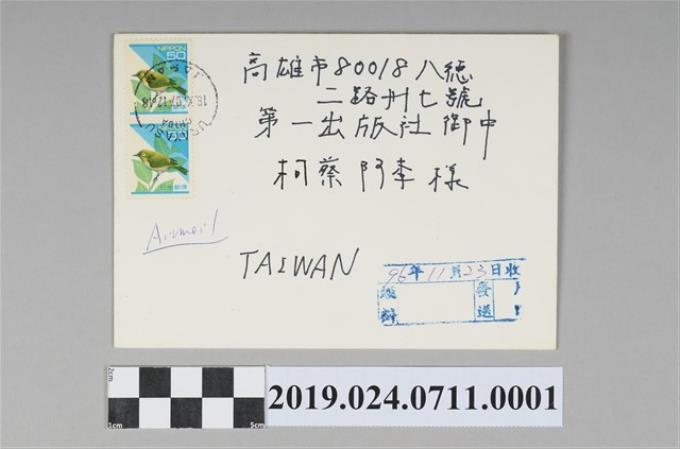 NIPPON
50
日本郵便
URAYASU
CHIBA
JAPAN
高雄市80018八德
二路卅七號
第一出版社 御中
柯蔡阿李 様
Airmail
TAIWAN
96年11月23日收
發送
2cm
1cm
5cm
2019.024.0711.0001